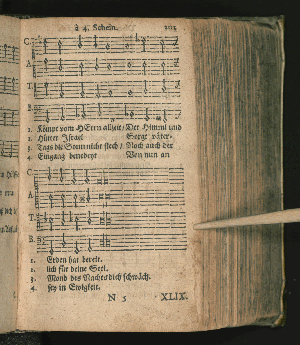 à 4. Schein.
C.
A.
T.
B.
1. Kömpt vom HErrn allzeit / Der Himml und
2. Hüter Israel Sorgt väter-
3. Tags die Sonn nicht stech / Noch auch der
4. Eingang benedeyt Von nun an
C.
A.
T.
B.
1. Erden hat bereit.
2. lich für deine Seel.
3. Mond des Nachts dich schwäch.
4. sey in Ewigkeit.
N 5 XLIX.